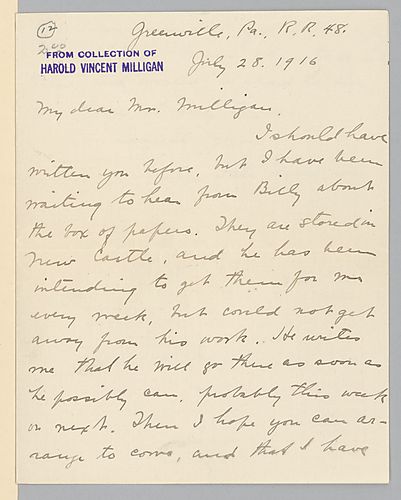 12
200
Greenville, Pa., R.R. 48.
FROM COLLECTION OF
HAROLD VINCENT MILLIGAN
July 28. 1916
My dear Mr. Milligan,
I should have
written you before, but I have been
waiting to hear from Billy about
the box of papers. They are stored in
New Castle, and he has been
intending to get them for me
every week, but could not get
away from his work. He writes
me that he will go there as soon as
he possibly can, probably this week
or next. Then I hope you can ar-
range to come, and that I have